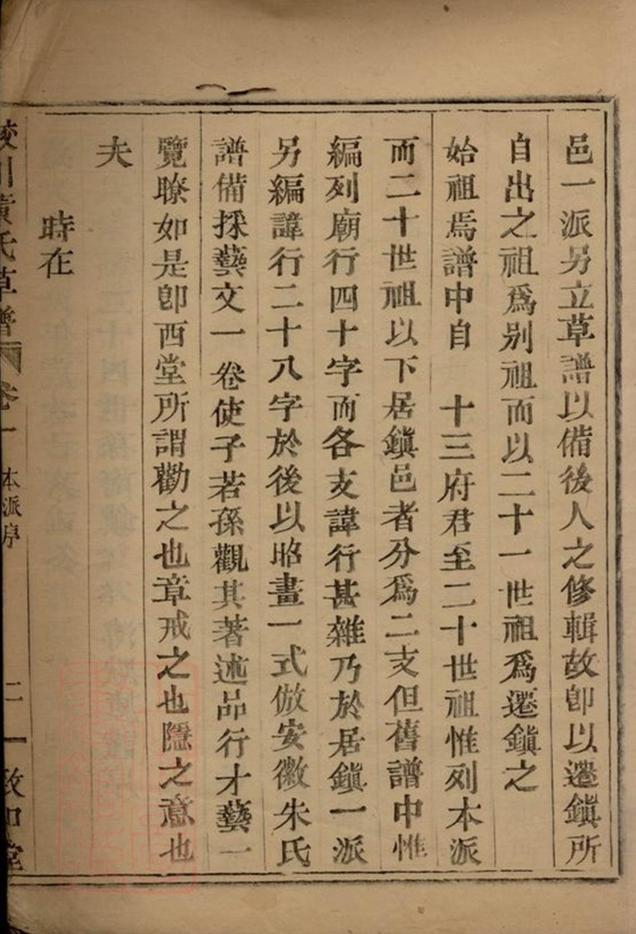 邑一派另立草譜以備後人之修輯故卽以遷鎭所
自出之祖爲别祖而以二十一世祖爲遷鎭之
始祖焉譜中自 十三府君至二十世祖惟列本派
而二十世祖以下居鎭邑者分爲二支但舊譜中惟
編列廟行四十字而各支諱行甚雜乃於居鎭一派
另編諱行二十八字於後以昭畫一式倣安徽朱氏
譜備採藝文一卷使子若孫觀其著述品行才藝一
覽瞭如是卽西堂所謂勸之也章戒之也隱之意也
夫
時在
川黃氏草譜 卷一 本派序 二 敦和堂